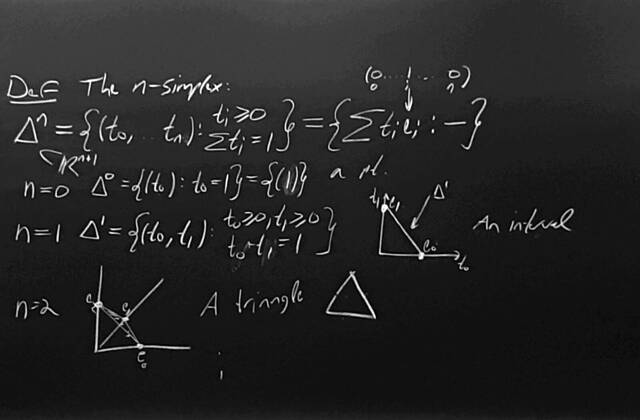 Def The n-simplex:
(0 ... 1 ... 0)
0 n
Δⁿ = {(t₀, ... tₙ): tᵢ ≥ 0 Σtᵢ = 1} = {Σ tᵢeᵢ : —}
⊂ ℝⁿ⁺¹
n=0 Δ⁰ = {(t₀): t₀ = 1} = {(1)} a pt.
n=1 Δ¹ = {(t₀, t₁): t₀ ≥ 0, t₁ ≥ 0 t₀ + t₁ = 1}
t₁ e₁ Δ¹ e₀ t₀
An interval
n=2 A triangle
e₀